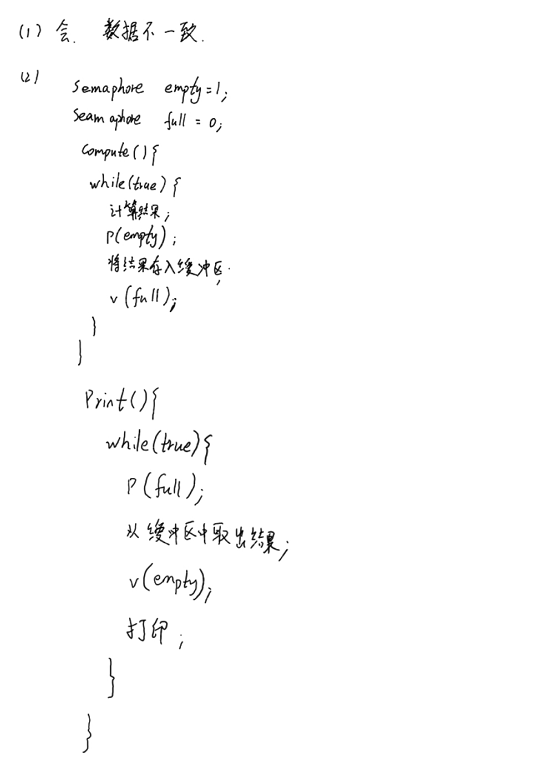 (1) 会. 数据不一致.
(2)
Semaphore empty=1;
Seamaphore full = 0;
Compute(){
while(true){
计算结果;
P(empty);
将结果存入缓冲区.
v(full);
}
}
Print(){
while(true){
P(full);
从缓冲区中取出结果;
v(empty);
打印;
}
}